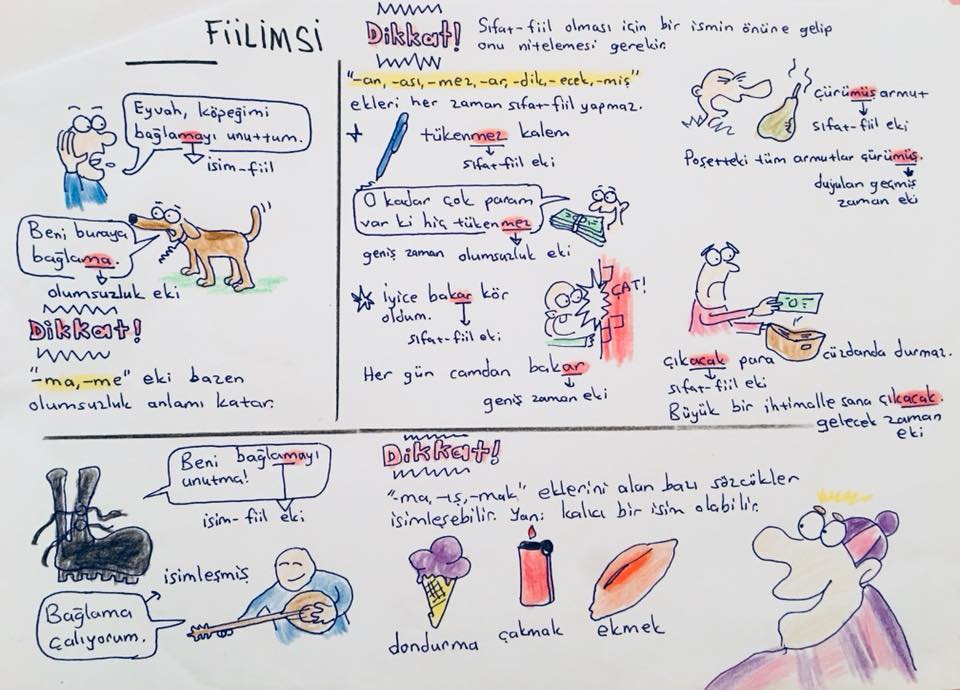 FİİLİMSİ
Eyvah, köpeğimi
bağlamayı unuttum.
isim-fiil
Beni buraya
bağlama.
olumsuzluk eki
Dikkat!
"-ma, -me" eki bazen
olumsuzluk anlamı katar.
Dikkat!
Sıfat-fiil olması için bir ismin önüne gelip
onu nitelemesi gerekir.
"-an, -ası, -mez, -ar, -dik, -ecek, -miş"
ekleri her zaman sıfat-fiil yapmaz.
tükenmez kalem
sıfat-fiil eki
O kadar çok param
var ki hiç tükenmez
geniş zaman olumsuzluk eki
İyice bakar kör
oldum.
sıfat-fiil eki
ÇAT!
Her gün camdan bakar
geniş zaman eki
çürümüş armut
sıfat-fiil eki
Poşetteki tüm armutlar çürümüş.
duyulan geçmiş
zaman eki
çıkacak para cüzdanda durmaz.
sıfat-fiil eki
Büyük bir ihtimalle sana çıkacak.
gelecek zaman
eki
Beni bağlamayı
unutma!
isim-fiil eki
isimleşmiş
Bağlama
çalıyorum.
Dikkat!
"-ma, -ış, -mak" eklerini alan bazı sözcükler
isimleşebilir. Yani kalıcı bir isim olabilir.
dondurma
çakmak
ekmek